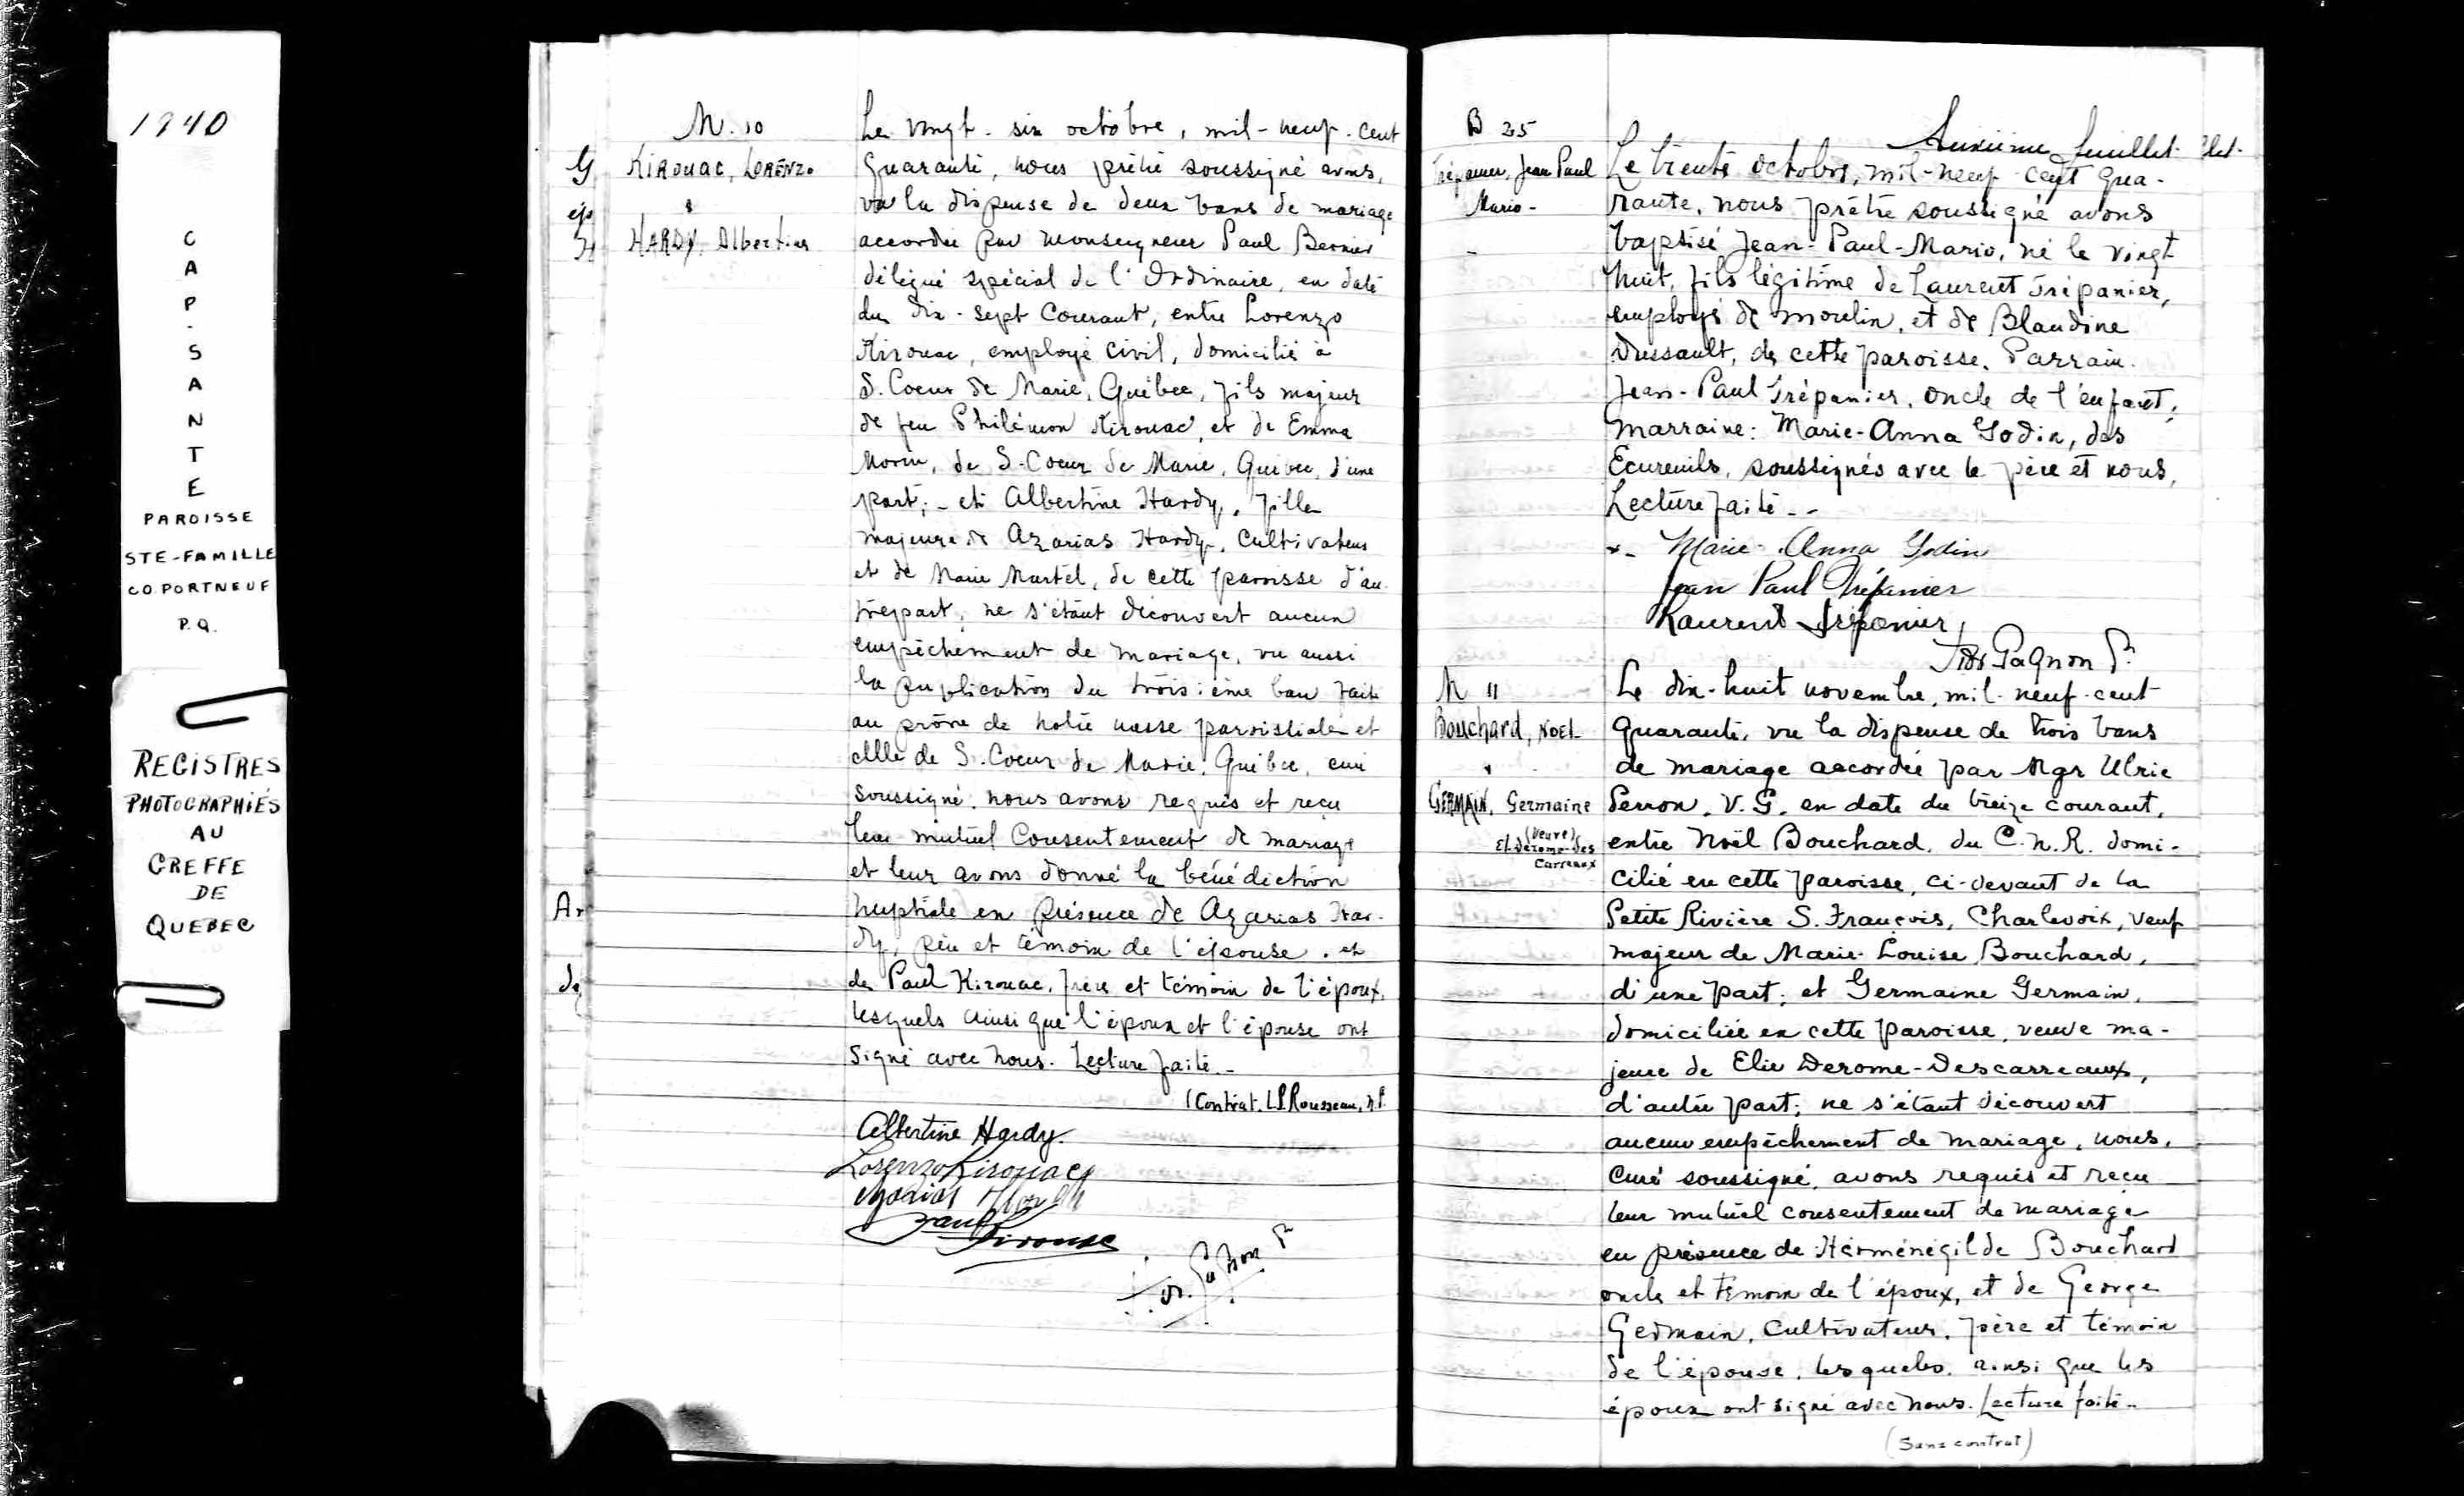 1940
CAP-SANTE
PAROISSE
STE-FAMILLE
CO. PORTNEUF
P.Q.
REGISTRES
PHOTOGRAPHIÉS
AU
GREFFE
DE
QUEBEC
G
ép
H
Ar
de
M. 10
KIROUAC, LORENZO
&
HARDY Albertine
Le vingt-six octobre, mil-neuf-cent
quarante, nous prêtre soussigné avons,
vu la dispense de deux bans de mariage
accordée par Monseigneur Paul Bernier
délégué spécial de l'Ordinaire, en date
du dix-sept courant, entre Lorenzo
Kirouac, employé civil, domicilié à
S. Coeur de Marie, Québec, fils majeur
de feu Philémon Kirouac, et de Emma
Morin, de S. Coeur de Marie, Québec, d'une
part; - et Albertine Hardy, fille
majeure de Azarias Hardy, cultivateur
et de Marie Martel, de cette paroisse d'au
tre part; ne s'étant découvert aucun
empêchement de mariage, vu aussi
la publication du troisième ban faite
au prône de notre messe paroissiale et
celle de S. Coeur de Marie, Québec, curé
soussigné, nous avons requis et reçu
leur mutuel consentement de mariage
et leur avons donné la bénédiction
nuptiale en présence de Azarias Har-
dy, père et témoin de l'épouse, et
de Paul Kirouac, frère et témoin de l'époux,
lesquels ainsi que l'époux et l'épouse ont
signé avec nous. Lecture faite.-
(Contrat. L.P. Rousseau, n.p.
Albertine Hardy.
Lorenzo Kirouac
Azarias Hardy
Paul Kirouac
Gagnon Ptre
feuillet
B 25
Trépanier, Jean Paul
Mario-
Le trente octobre, mil-neuf cent qua-
rante, nous prêtre soussigné avons
baptisé Jean-Paul-Mario, né le vingt
huit, fils légitime de Laurent Trépanier,
employé de moulin, et de Blandine
Dussault, de cette paroisse. Parrain.
Jean-Paul Trépanier, oncle de l'enfant;
marraine: Marie-Anna Godin, des
Ecureuils, soussignés avec le père et nous,
Lecture faite--
x- Marie-Anna Godin
Jean Paul Trépanier
Laurent Trépanier
Gagnon Ptre
M 11
Bouchard, NOEL
&
GERMAIN, Germaine
(veuve)
El. Derome-des
Carreaux
Le dix-huit novembre, mil-neuf-cent
quarante, vu la dispense de trois bans
de mariage accordée par Mgr Ulric
Perron, V.G. en date du treize courant,
entre Noël Bouchard, du C.N.R. domi-
cilié en cette paroisse, ci-devant de la
Petite Rivière S. François, Charlevoix, veuf
majeur de Marie-Louise Bouchard,
d'une part; et Germaine Germain,
domiciliée en cette paroisse, veuve ma-
jeure de Elie Derome-Descarreaux,
d'autre part; ne s'étant découvert
aucun empêchement de mariage, nous,
curé soussigné, avons requis et reçu
leur mutuel consentement de mariage
en présence de Herménégilde Bouchard
oncle et témoin de l'époux, et de George
Germain, cultivateur, père et témoin
de l'épouse, lesquels, ainsi que les
époux ont signé avec nous. Lecture faite-
(Sans contrat)